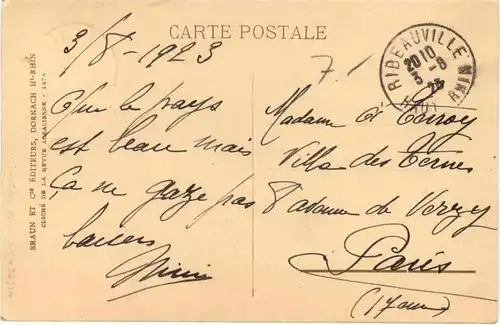 CARTE POSTALE
3/8-1923
Que le pays
est beau mais
Ça ne gaze pas
baisers
Mimi
7.-
RIBEAUVILLE
20 10
3-8
23
Madame de
Villa des Ternes
8 avenue de Verzy
Paris
(17eme)
BRAUN ET Cie ÉDITEURS, DORNACH Ht-RHIN
CLICHÉ DE LA REVUE ALSACIENNE - 4474